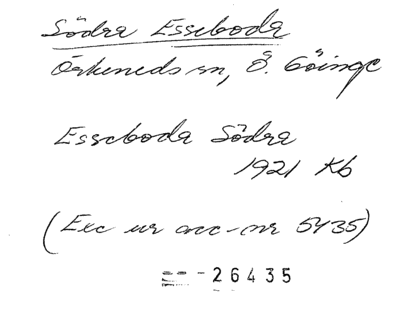 Södra Esseboda
Örkeneds sn, Ö. Göinge
Esseboda Södra
1921 Kb
(Exc ur acc-nr 5435)
-26435